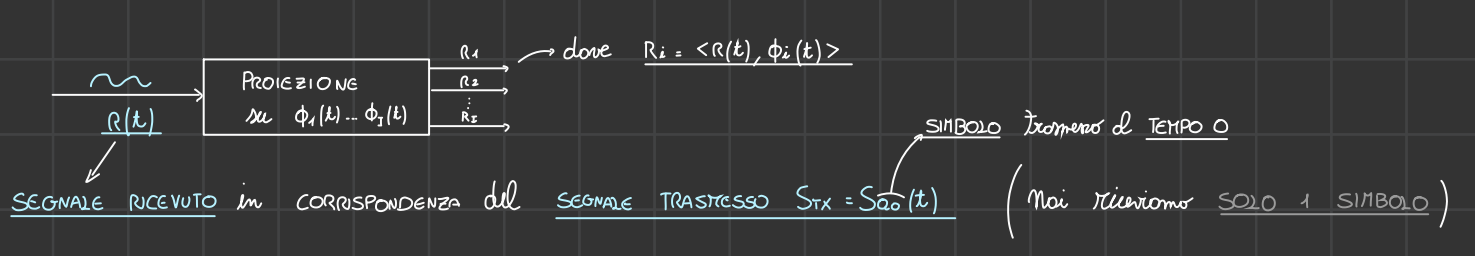 R1 dove Ri = <R(t), ϕi(t)>
PROIEZIONE R2
su ϕ1(t) ... ϕI(t) ⋮
R(t) RI
SIMBOLO trasmesso al TEMPO 0
SEGNALE RICEVUTO in CORRISPONDENZA del SEGNALE TRASMESSO STX = Sa0(t) (Noi riceviamo SOLO 1 SIMBOLO)